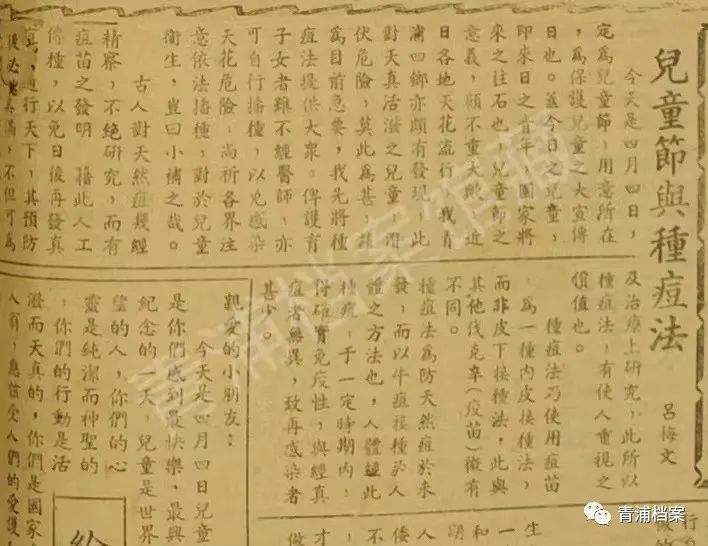 兒童節與種痘法
呂梅文
今天是四月四日，
定爲兒童節，用意所在
，爲保護兒童之大宣傳
日也。蓋今日之兒童，
即來日之青年，國家將
來之柱石也，兒童節之
意義，頗不重大歟，近
日各地天花流行，我青
浦四鄉亦頗有發現，此
對天真活潑之兒童，潛
伏危險，莫此爲甚，茲
爲目前急要，我先將種
痘法提供大衆。俾護育
子女者雖不經醫師，亦
可自行播種，以免感染
天花危險，尚祈各界注
意依法播種，對於兒童
衛生，豈曰小補之哉。
古人對天然痘幾經
精察，不絕研究，而有
痘苗之發明，藉此人工
傳種，以免日後再發真
，通行天下，其預防
後必美滿，不但可爲
及治療上研究，此所以
種痘法，有使人重視之
價值也。
種痘法乃使用痘苗
，爲一種內皮接種法，
而非皮下接種法，此與
其他伐克辛（疫苗）微有
不同。
種痘法爲防天然痘於未
發，而以牛痘接種於人
體之方法也，人體經此
種痘，于一定時期內，
得確實免疫性，與經真
痘者無異，致再感染者
甚少。
親愛的小朋友：
今天是四月四日兒童
是你們感到最快樂，最興
紀念的一天，兒童是世界
的人，你們的心
靈是純潔而神聖的
，你們的行動是活
潑而天真的，你們是國家
人翁，應該受人們的愛護
行
生
一
和
期
人
倭
不
才
做
給
青浦档案